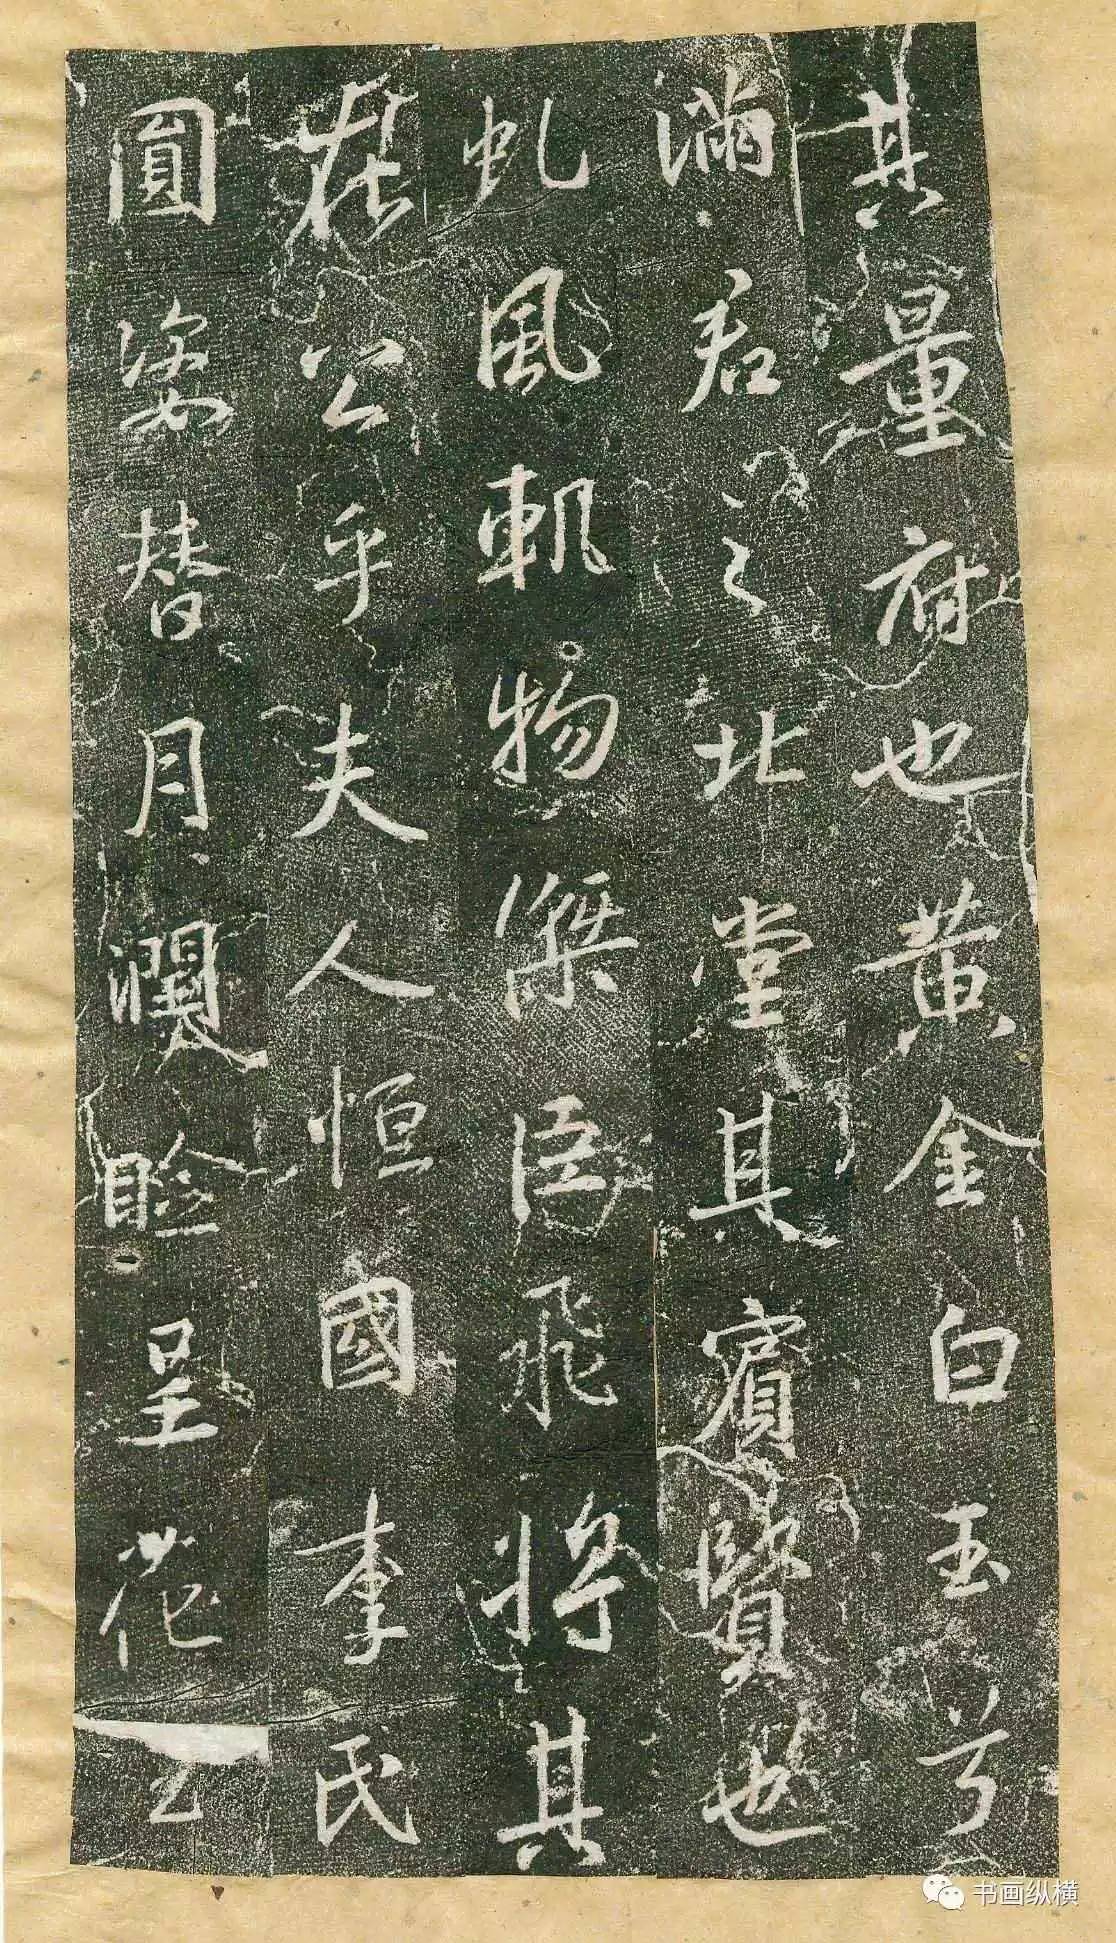 其量府也黄金白玉兮
滿君之北堂其賓賢也
虬風軌物傑臣飛將其
在公乎夫人恒國李氏
圓姿替月潤臉呈花
书画纵横